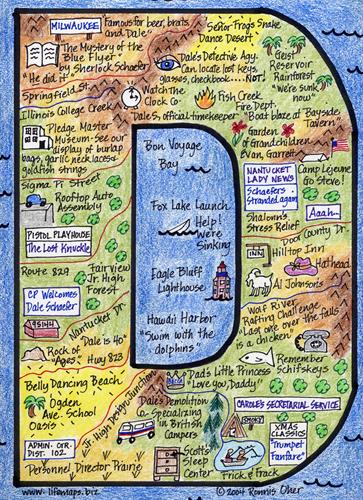 MILWAUKEE
Famous for beer, brats,
and Dale"
Señor Frog's Snake
Dance Desert
The Mystery of the
Blue Flyer"
by Sherlock Schaefer
"He did it"
Dale's Detective Agy.
Can locate lost keys
glasses, checkbook... NOT.
Geist
Reservoir
Rainforest
"We're sunk
now"
Springfield St.
Illinois College Creek
Watch The
Clock Co.
Dale's official timekeeper
Fish Creek
Fire Dept.
"Boat blaze at Bayside
Tavern"
Pledge Master
Museum-see our
display of burlap
bags, garlic necklaces &
goldfish strings
Garden
of Grandchildren
Evan, Garrett
Camp Lejeune
Go Steve!
Bon Voyage
Bay
NANTUCKET
LADY NEWS
Schaefers
Stranded again
Sigma Pi Street
Rooftop Auto
Assembly
Fox Lake Launch
Help!
We're
Sinking
Shalom's
Stress Relief
Aaah...
PISTOL PLAYHOUSE
The Lost Knuckle
Door County Dr.
Hilltop Inn
INN
Hathead
Al Johnson's
Route 829
Fairview
Jr. High
Forest
Eagle Bluff
Lighthouse
CP Welcomes
Dale Schaefer
Wolf River
Rafting Challenge
"Last one over the falls
is a chicken"
Nantucket Dr.
Dale is 40"
Rock of
"Ages"
Hwy 823
Hawaii Harbor
"Swim with the
dolphins"
Remember
Schifskeys
Belly Dancing Beach
Ogden
Ave. School
Oasis
Dad's Little Princess
"Love you, Daddy"
Jr. High Jenby Junction
Dale's Demolition
Specializing
in British
Campers
CAROLE'S SECRETARIAL SERVICE
SMOKY
XMAS
CLASSICS
"Trumpet
Fanfare"
ADMIN. CTR.
DIST. 102
Personnel Director Prairie
Scott's
Sleep
Center
Frick & Frack
www.lifemaps.biz
© 2004 Ronnis Oher